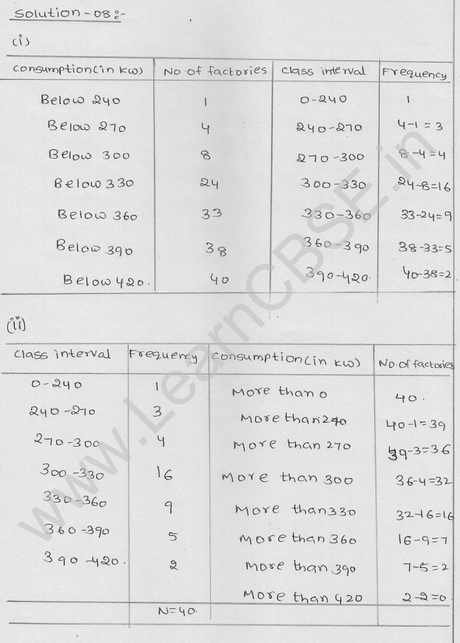 Solution-08:-
(i)
Consumption(in kW) No of factories Class interval Frequency
Below 240 1 0-240 1
Below 270 4 240-270 4-1=3
Below 300 8 270-300 8-4=4
Below 330 24 300-330 24-8=16
Below 360 33 330-360 33-24=9
Below 390 38 360-390 38-33=5
Below 420. 40 390-420. 40-38=2
(ii)
Class interval Frequency Consumption(in kW) No.of factories
0-240 1 More than 0 40.
240-270 3 More than 240 40-1=39
270-300 4 More than 270 39-3=36
300-330 16 More than 300 36-4=32
330-360 9 More than 330 32-16=16
360-390 5 More than 360 16-9=7
390-420. 2 More than 390 7-5=2
More than 420 2-2=0
N=40.
www.LearnCBSE.in